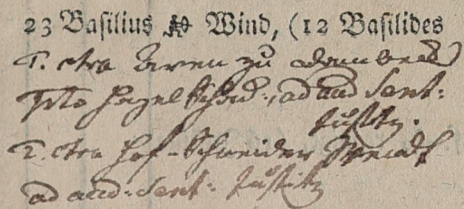 23 Basilius Wind, (12 Basilides
T. ctra Aren zu Dambeck
Pto Hagelschad:, ad aud Sent:
Justitz.
T. ctra Hof-Schneider
ad aud: Sent: Justitz